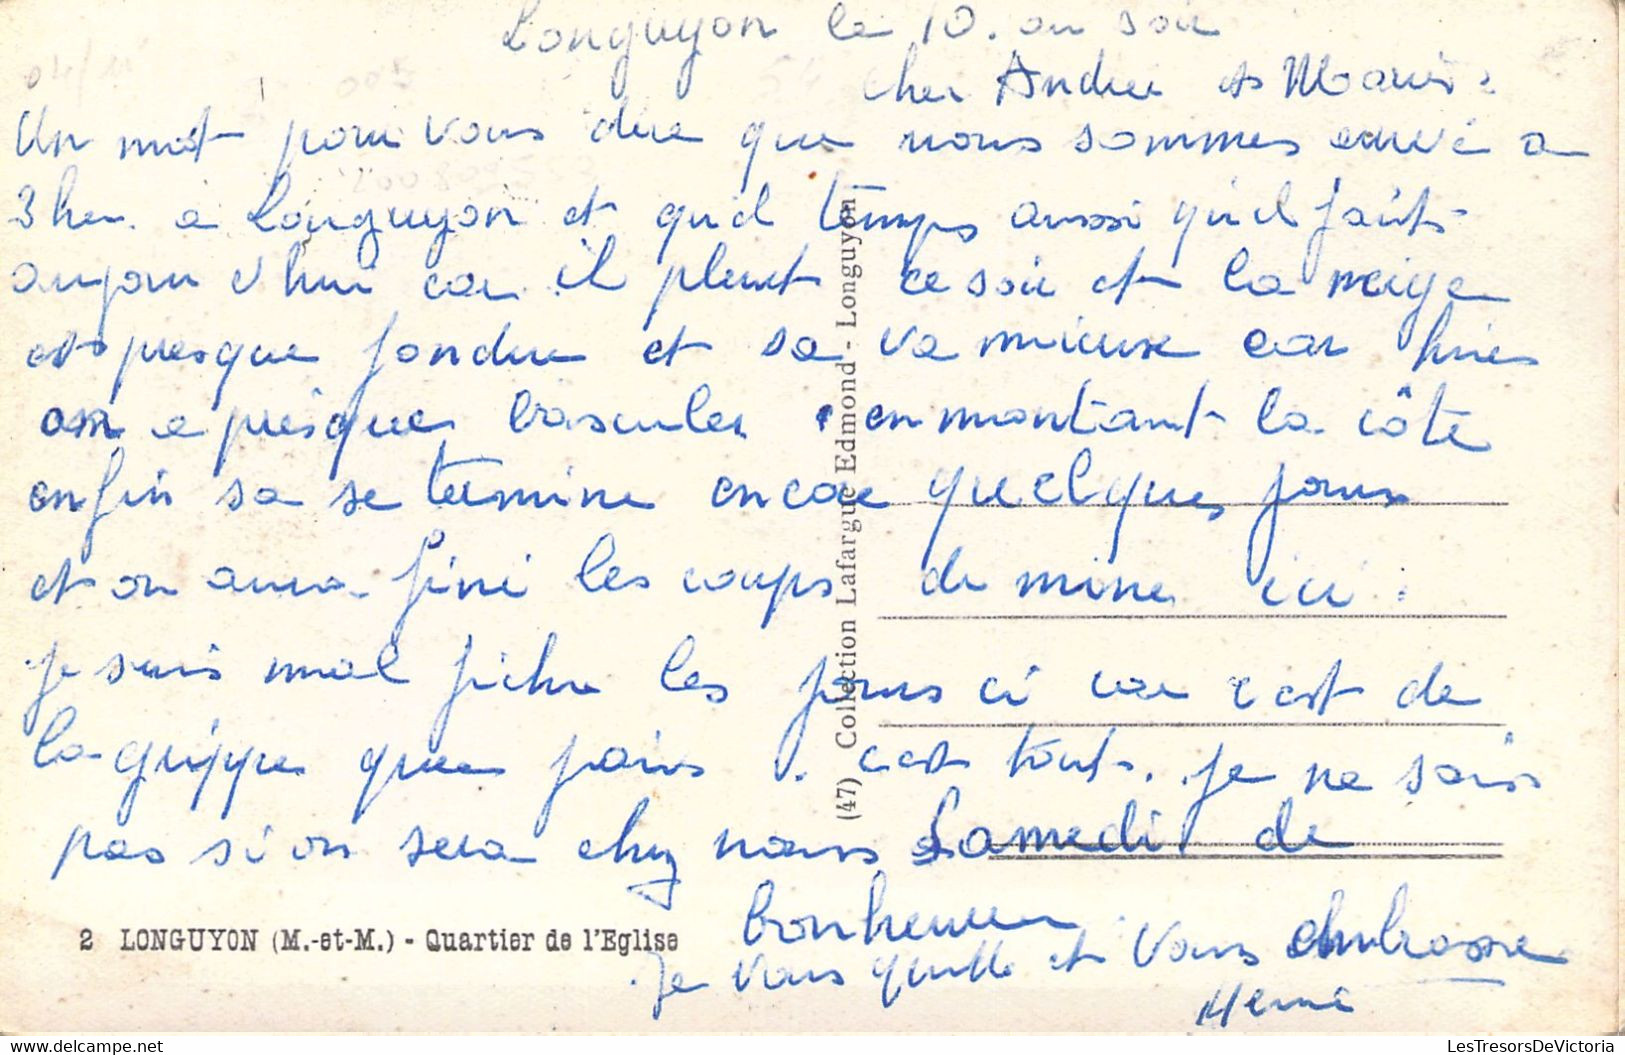 Longuyon le 10. au soir
Cher André et Marie
Un mot pour vous dire que nous sommes arivé a
3 heu. a Longuyon et quel temps aussi qu'il faits
aujour d'hui car il pleut ce soir et la neige
est presque fondue et sa va mieux car hier
on a presque basculer en montant la côte
enfin sa se termine encore quelques jours
et on aura fini les coups de mine ici.
je suis mal fichu les jours ci car c'est de
la grippe que j'ais. c'est tout. je ne sais
pas si on sera chez nous Samedi de
bonheure
je vous quitte et vous embrasse
2 LONGUYON (M.-et-M.) - Quartier de l'Eglise
(47) Collection Lafargue Edmond - Longuyon
LesTresorsDeVictoria.com
LesTresorsDeVictoria